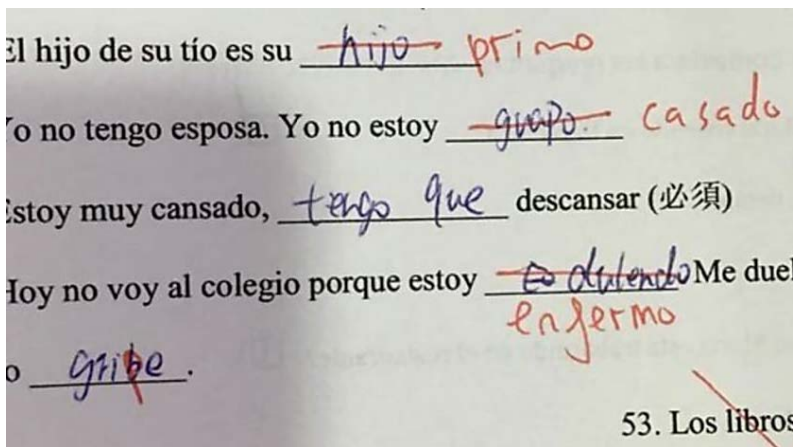 El hijo de su tío es su hijo primo
Yo no tengo esposa. Yo no estoy guapo. casado
Estoy muy cansado, tengo que descansar (必須)
Hoy no voy al colegio porque estoy Me duel
enfermo
o gripe.
53. Los libros